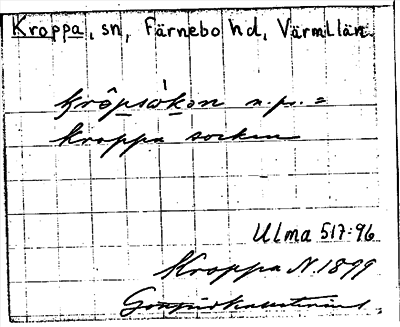 Kroppa, sn, Färnebo hd, Värml. län.
krôpsòkən n.pr. =
Kroppa socken
Ulma 517:96
Kroppa N. 1899